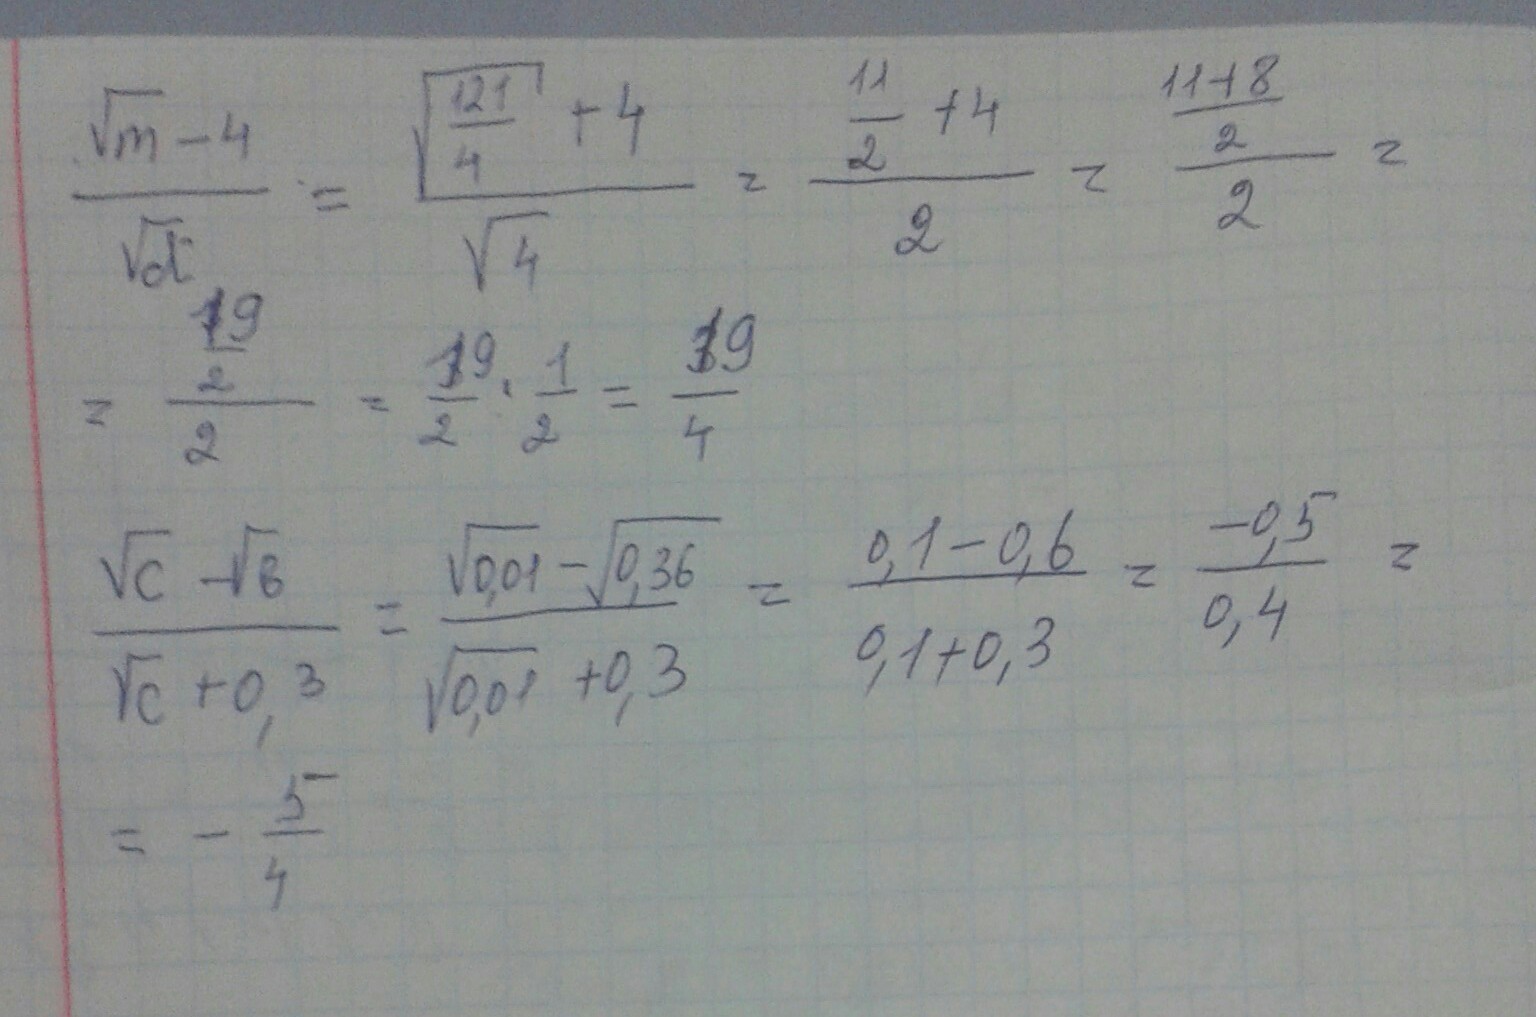 (√m − 4)/√d = (√(121/4) + 4)/√4 = (11/2 + 4)/2 = ((11+8)/2)/2 =
= (19/2)/2 = 19/2 · 1/2 = 19/4
(√c − √в)/(√c + 0,3) = (√0,01 − √0,36)/(√0,01 + 0,3) = (0,1 − 0,6)/(0,1 + 0,3) = −0,5/0,4 =
= − 5/4